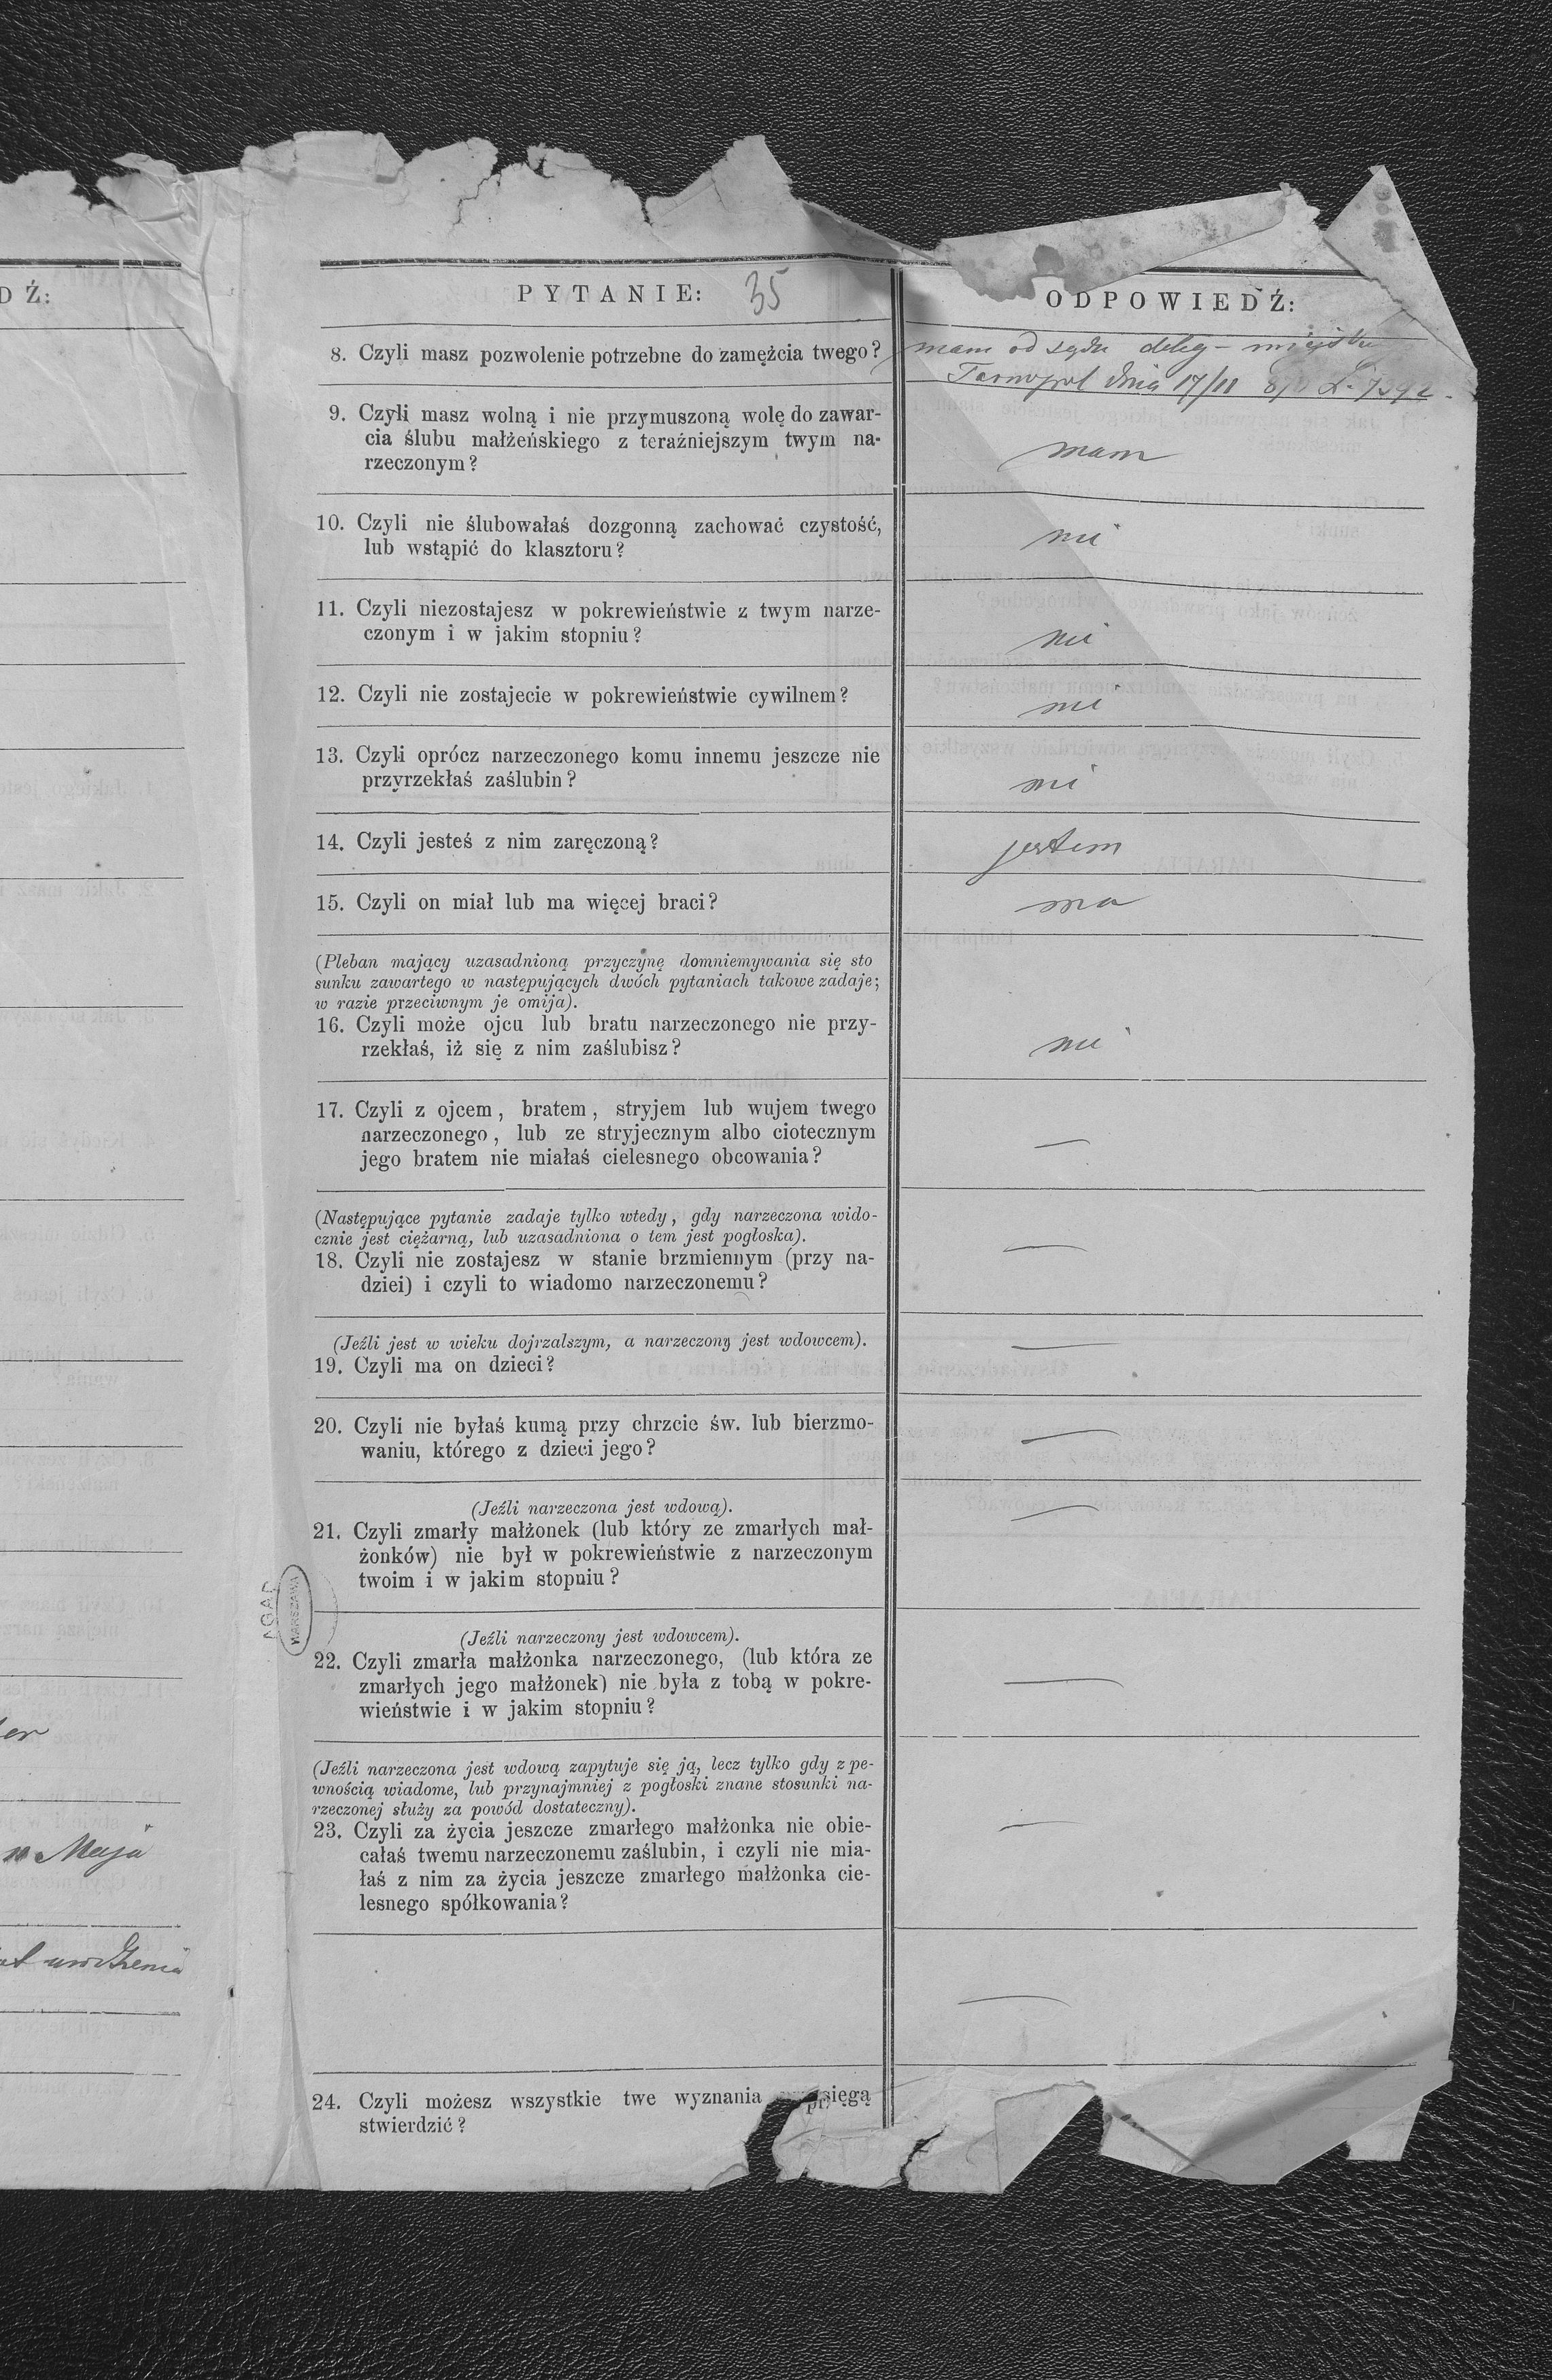 DŹ:
er
10 Maja
urodzenia
PYTANIE: 35
ODPOWIEDŹ:
8. Czyli masz pozwolenie potrzebne do zamężcia twego?
mam od sądu deleg-
Tarnopol dnia 17/11
9. Czyli masz wolną i nie przymuszoną wolę do zawar-
cia ślubu małżeńskiego z teraźniejszym twym na-
rzeczonym?
mam
10. Czyli nie ślubowałaś dozgonną zachować czystość,
lub wstąpić do klasztoru?
nie
11. Czyli niezostajesz w pokrewieństwie z twym narze-
czonym i w jakim stopniu?
nie
12. Czyli nie zostajecie w pokrewieństwie cywilnem?
nie
13. Czyli oprócz narzeczonego komu innemu jeszcze nie
przyrzekłaś zaślubin?
nie
14. Czyli jesteś z nim zaręczoną?
jestem
15. Czyli on miał lub ma więcej braci?
ma
(Pleban mający uzasadnioną przyczynę domniemywania się sto
sunku zawartego w następujących dwóch pytaniach takowe zadaje;
w razie przeciwnym je omija).
16. Czyli może ojcu lub bratu narzeczonego nie przy-
rzekłaś, iż się z nim zaślubisz?
nie
17. Czyli z ojcem, bratem, stryjem lub wujem twego
narzeczonego, lub ze stryjecznym albo ciotecznym
jego bratem nie miałaś cielesnego obcowania?
—
(Następujące pytanie zadaje tylko wtedy, gdy narzeczona wido-
cznie jest ciężarną, lub uzasadniona o tem jest pogłoska).
18. Czyli nie zostajesz w stanie brzmiennym (przy na-
dziei) i czyli to wiadomo narzeczonemu?
—
(Jeźli jest w wieku dojrzalszym, a narzeczony jest wdowcem).
19. Czyli ma on dzieci?
—
20. Czyli nie byłaś kumą przy chrzcie św. lub bierzmo-
waniu, którego z dzieci jego?
—
(Jeźli narzeczona jest wdową).
21. Czyli zmarły małżonek (lub który ze zmarłych mał-
żonków) nie był w pokrewieństwie z narzeczonym
twoim i w jakim stopniu?
—
AGAD
WARSZAWA
(Jeźli narzeczony jest wdowcem).
22. Czyli zmarła małżonka narzeczonego, (lub która ze
zmarłych jego małżonek) nie była z tobą w pokre-
wieństwie i w jakim stopniu?
—
(Jeźli narzeczona jest wdową zapytuje się ją, lecz tylko gdy z pe-
wnością wiadome, lub przynajmniej z pogłoski znane stosunki na-
rzeczonej służy za powód dostateczny).
23. Czyli za życia jeszcze zmarłego małżonka nie obie-
całaś twemu narzeczonemu zaślubin, i czyli nie mia-
łaś z nim za życia jeszcze zmarłego małżonka cie-
lesnego spółkowania?
—
—
24. Czyli możesz wszystkie twe wyznania
stwierdzić?